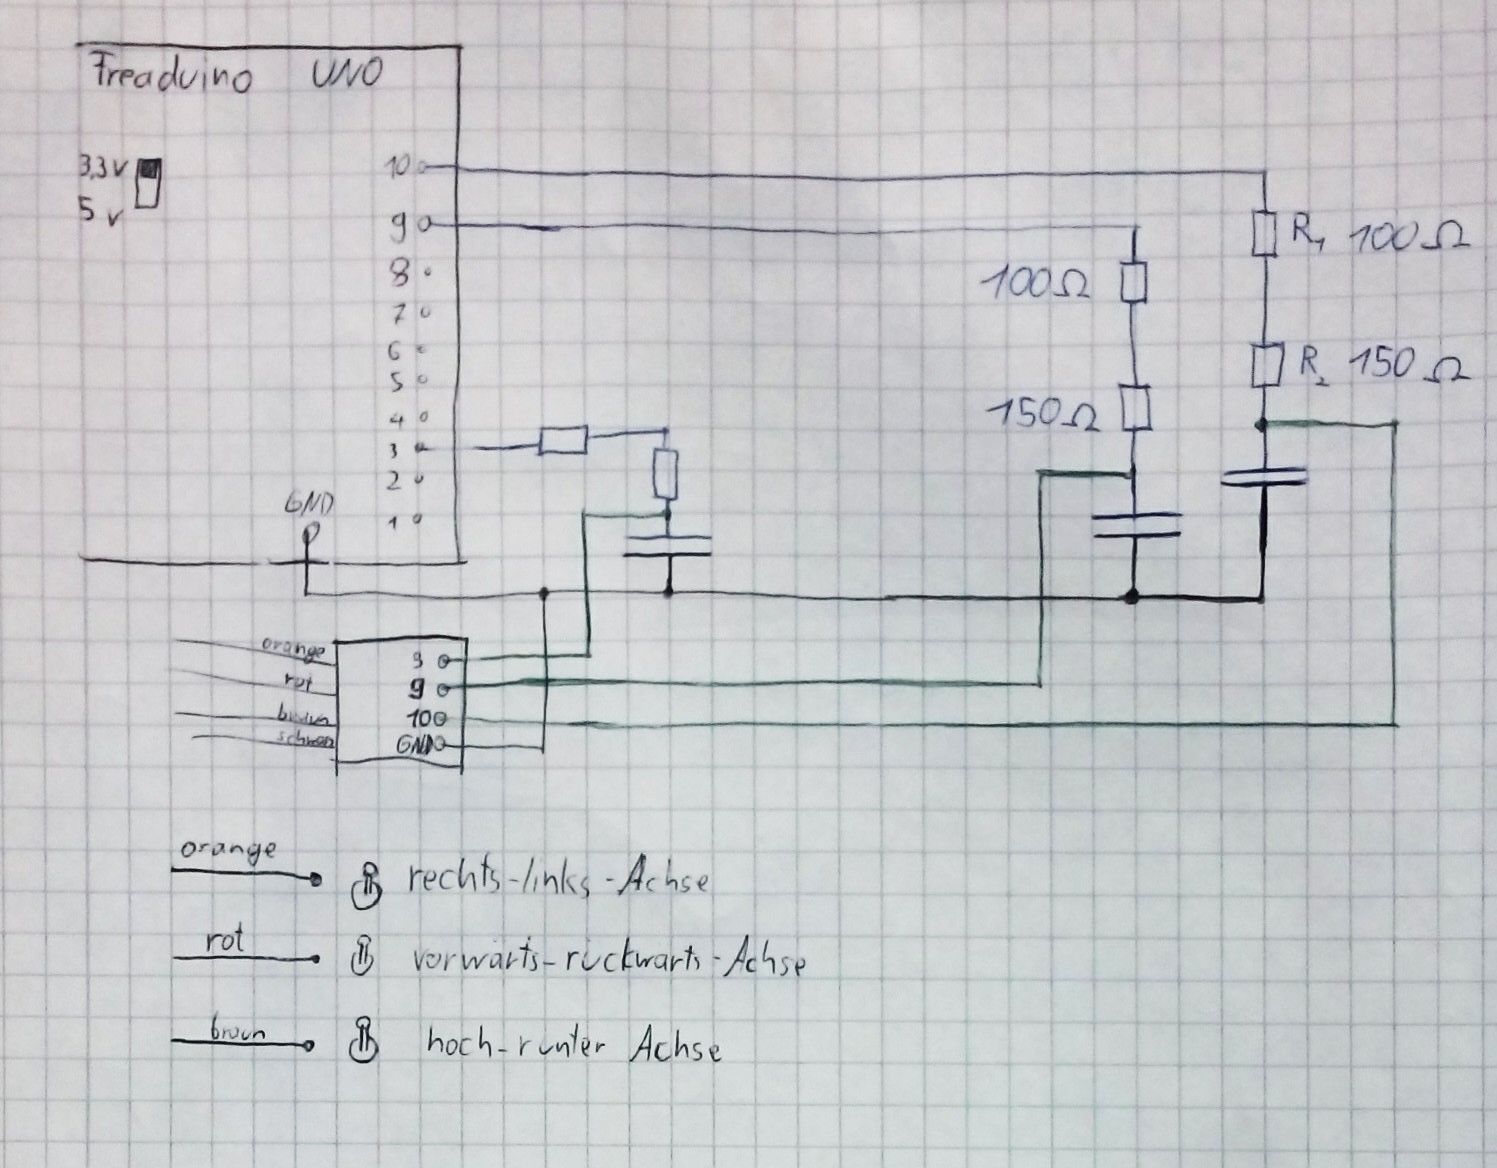 Freaduino UNO
3,3V
5 V
10
9
8
7
6
5
4
3
2
1
GND
R1 100Ω
100Ω
R2 150Ω
150Ω
orange 3
rot 9
braun 10
schwarz GND
orange rechts-links-Achse
rot vorwärts-rückwarts-Achse
braun hoch-runter Achse